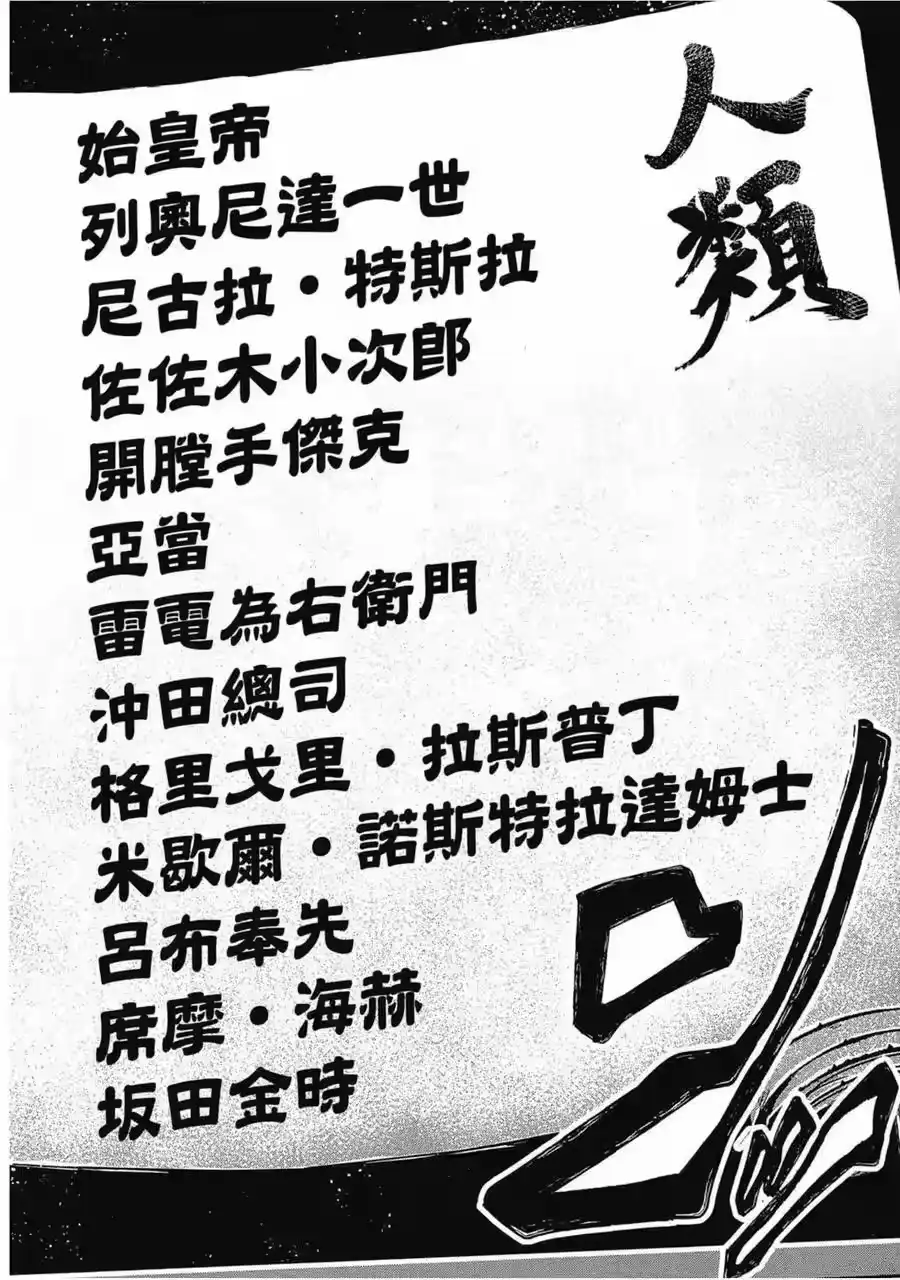 人類
始皇帝
列奧尼達一世
尼古拉・特斯拉
佐佐木小次郎
開膛手傑克
亞當
雷電為右衛門
沖田總司
格里戈里・拉斯普丁
米歇爾・諾斯特拉達姆士
呂布奉先
席摩・海赫
坂田金時